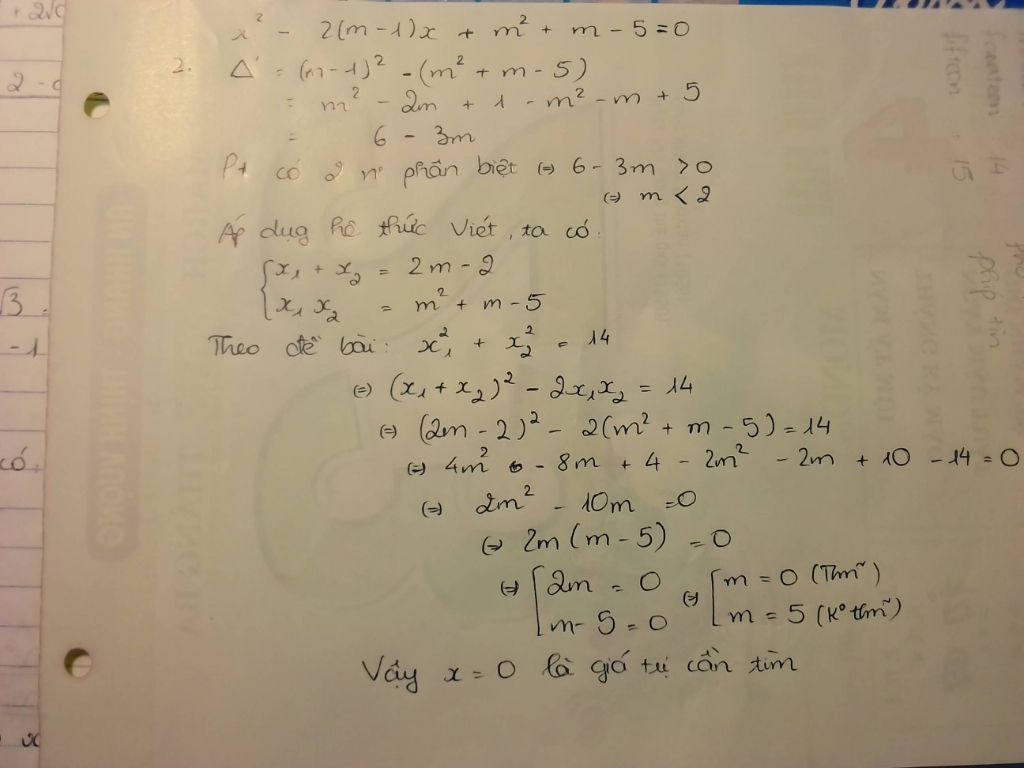 x² - 2(m-1)x + m² + m - 5 = 0
2. Δ' = (m-1)² - (m² + m - 5)
= m² - 2m + 1 - m² - m + 5
= 6 - 3m
Pt có 2 n° phân biệt ⇔ 6 - 3m > 0
⇔ m < 2
Áp dụg hệ thức Viét, ta có:
{ x₁ + x₂ = 2m - 2
x₁ x₂ = m² + m - 5
Theo đề bài: x₁² + x₂² = 14
⇔ (x₁ + x₂)² - 2x₁x₂ = 14
⇔ (2m - 2)² - 2(m² + m - 5) = 14
⇔ 4m² - 8m + 4 - 2m² - 2m + 10 - 14 = 0
⇔ 2m² - 10m = 0
⇔ 2m (m - 5) = 0
⇔ [ 2m = 0 ⇔ [ m = 0 (Tm~)
m - 5 = 0 m = 5 (K° tm~)
Vậy x = 0 là giá tị cần tìm
2 -
√3
-1
có
x